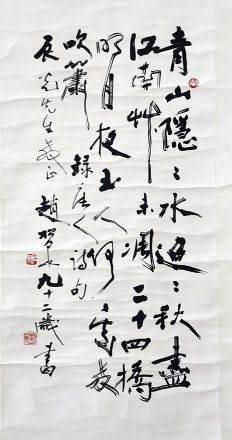 青山隱〻水迢〻秋盡
江南艸未凋二十四橋
明月夜玉人何處教
吹簫
錄唐人詩句
辰光先生教正
趙 九十二歲書